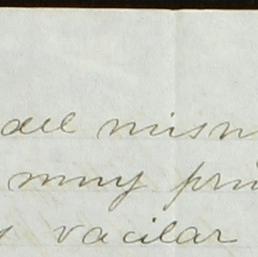 del mism
muy pru
vacilar